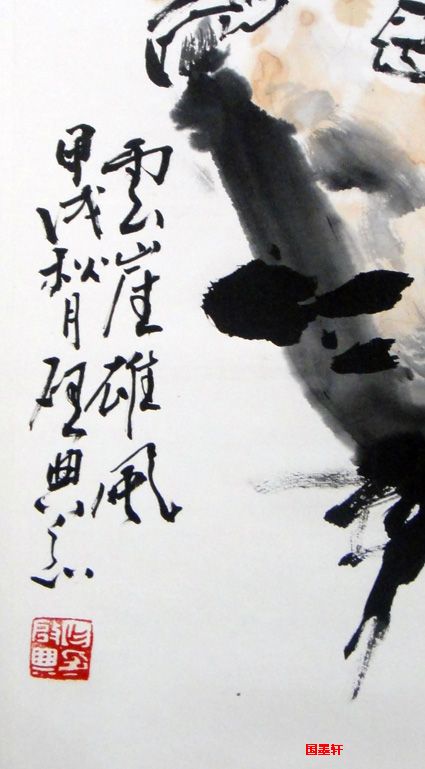 雲崖雄風
甲戌秋月 典
国墨轩